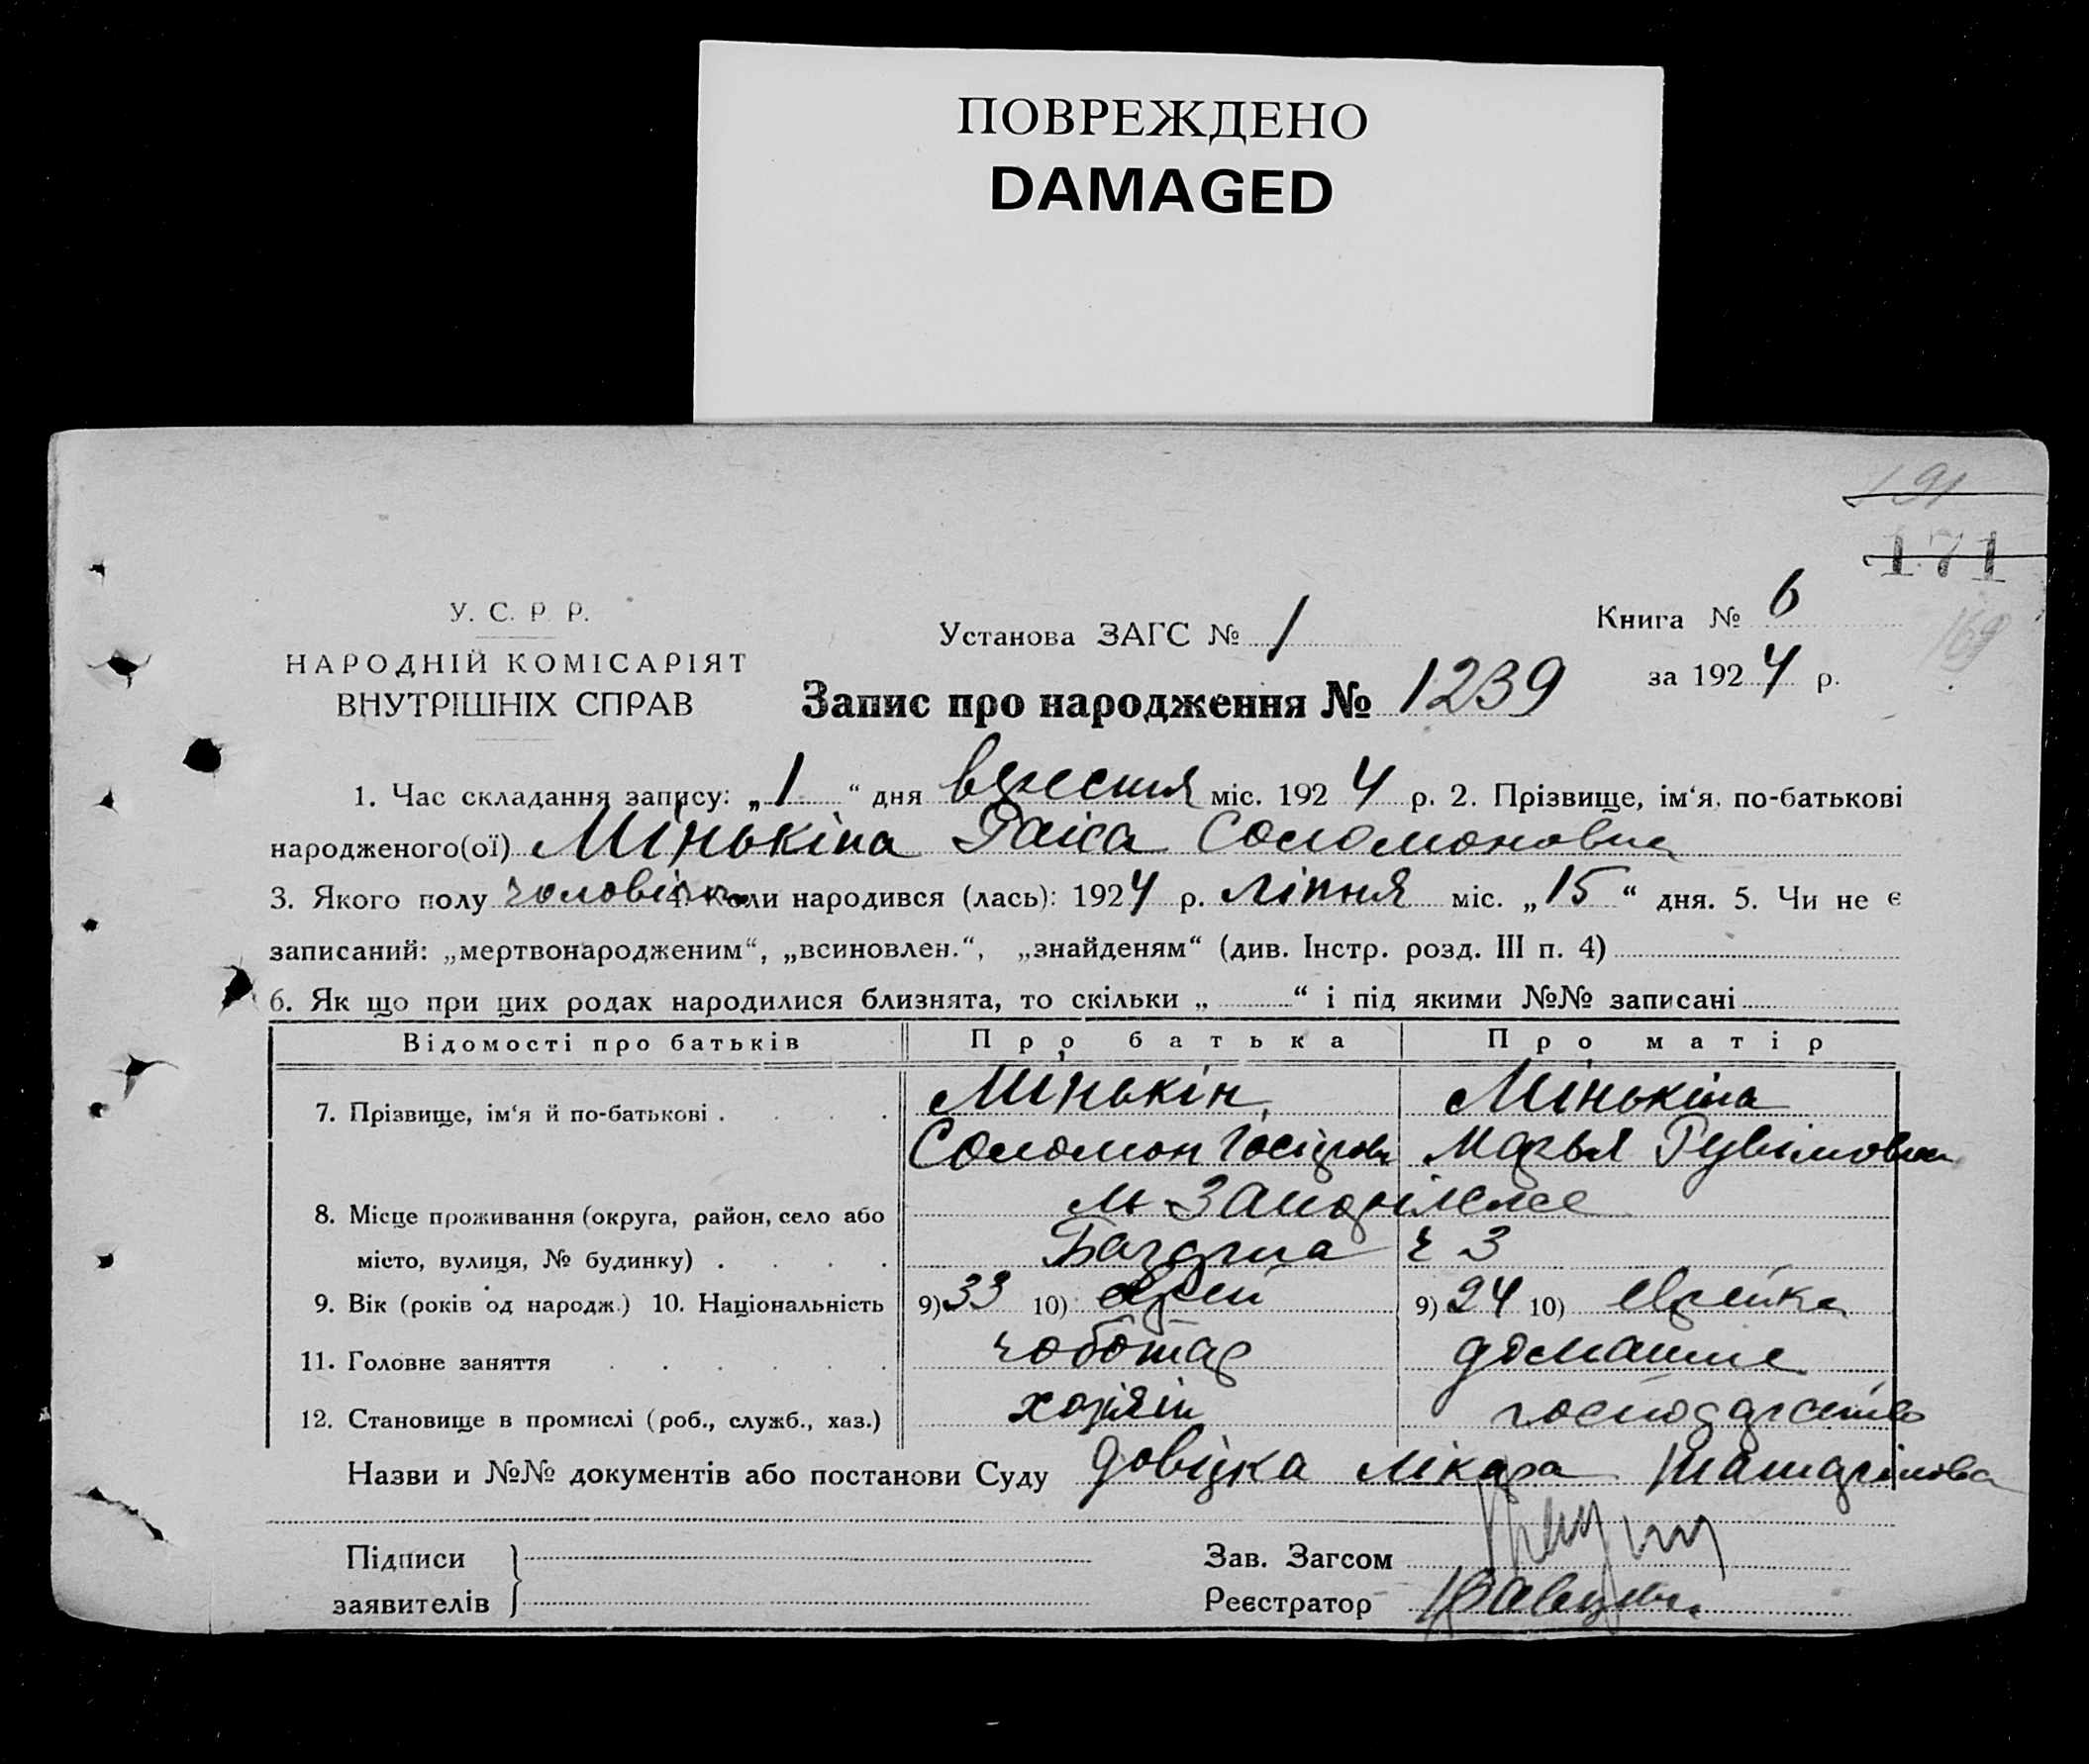 ПОВРЕЖДЕНО
DAMAGED
191
171
169
У. С. Р. Р.
НАРОДНІЙ КОМІСАРІЯТ
ВНУТРІШНІХ СПРАВ
Установа ЗАГС № 1
Книга № 6
за 1924 р.
Запис про народження № 1239
1. Час складання запису: „1“ дня вересня міс. 1924 р. 2. Прізвище, ім‘я, по-батькові
народженого(ої) Мінькіна Раіса Соломоновна
3. Якого полу 4. Коли народився (лась): 1924 р. ліпня міс. „15“ дня. 5. Чи не є
записаний: „мертвонародженим“, „всиновлен.“, „знайденям“ (див. Інстр. розд. III п. 4)
6. Як що при цих родах народилися близнята, то скільки „ “ і під якими №№ записані
Відомості про батьків Про батька Про матір
7. Прізвище, ім‘я й по-батькові . Мінькін, Мінькіна
Соломон Марья Рувімовна
8. Місце проживання (округа, район, село або
місто, вулиця, № будинку) . ч 3
9. Вік (років од народж.) 10. Національність 9) 33 10) Єврей 9) 24 10) Єврейка
11. Головне заняття чоботар домашнє
12. Становище в промислі (роб., служб., хаз.) хозяїн господарство
Назви и №№ документів або постанови Суду довідка лікаря
Підписи
заявителів
Зав. Загсом
Реєстратор